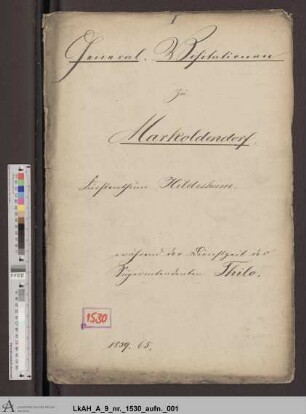 General-Visitationen
zu
Markoldendorf.
Fürstenthum Hildesheim.
während der Dienstzeit des
Superintendenten Thilo.
1530
1859. 65.
LkAH_A_9_nr._1530_aufn._001